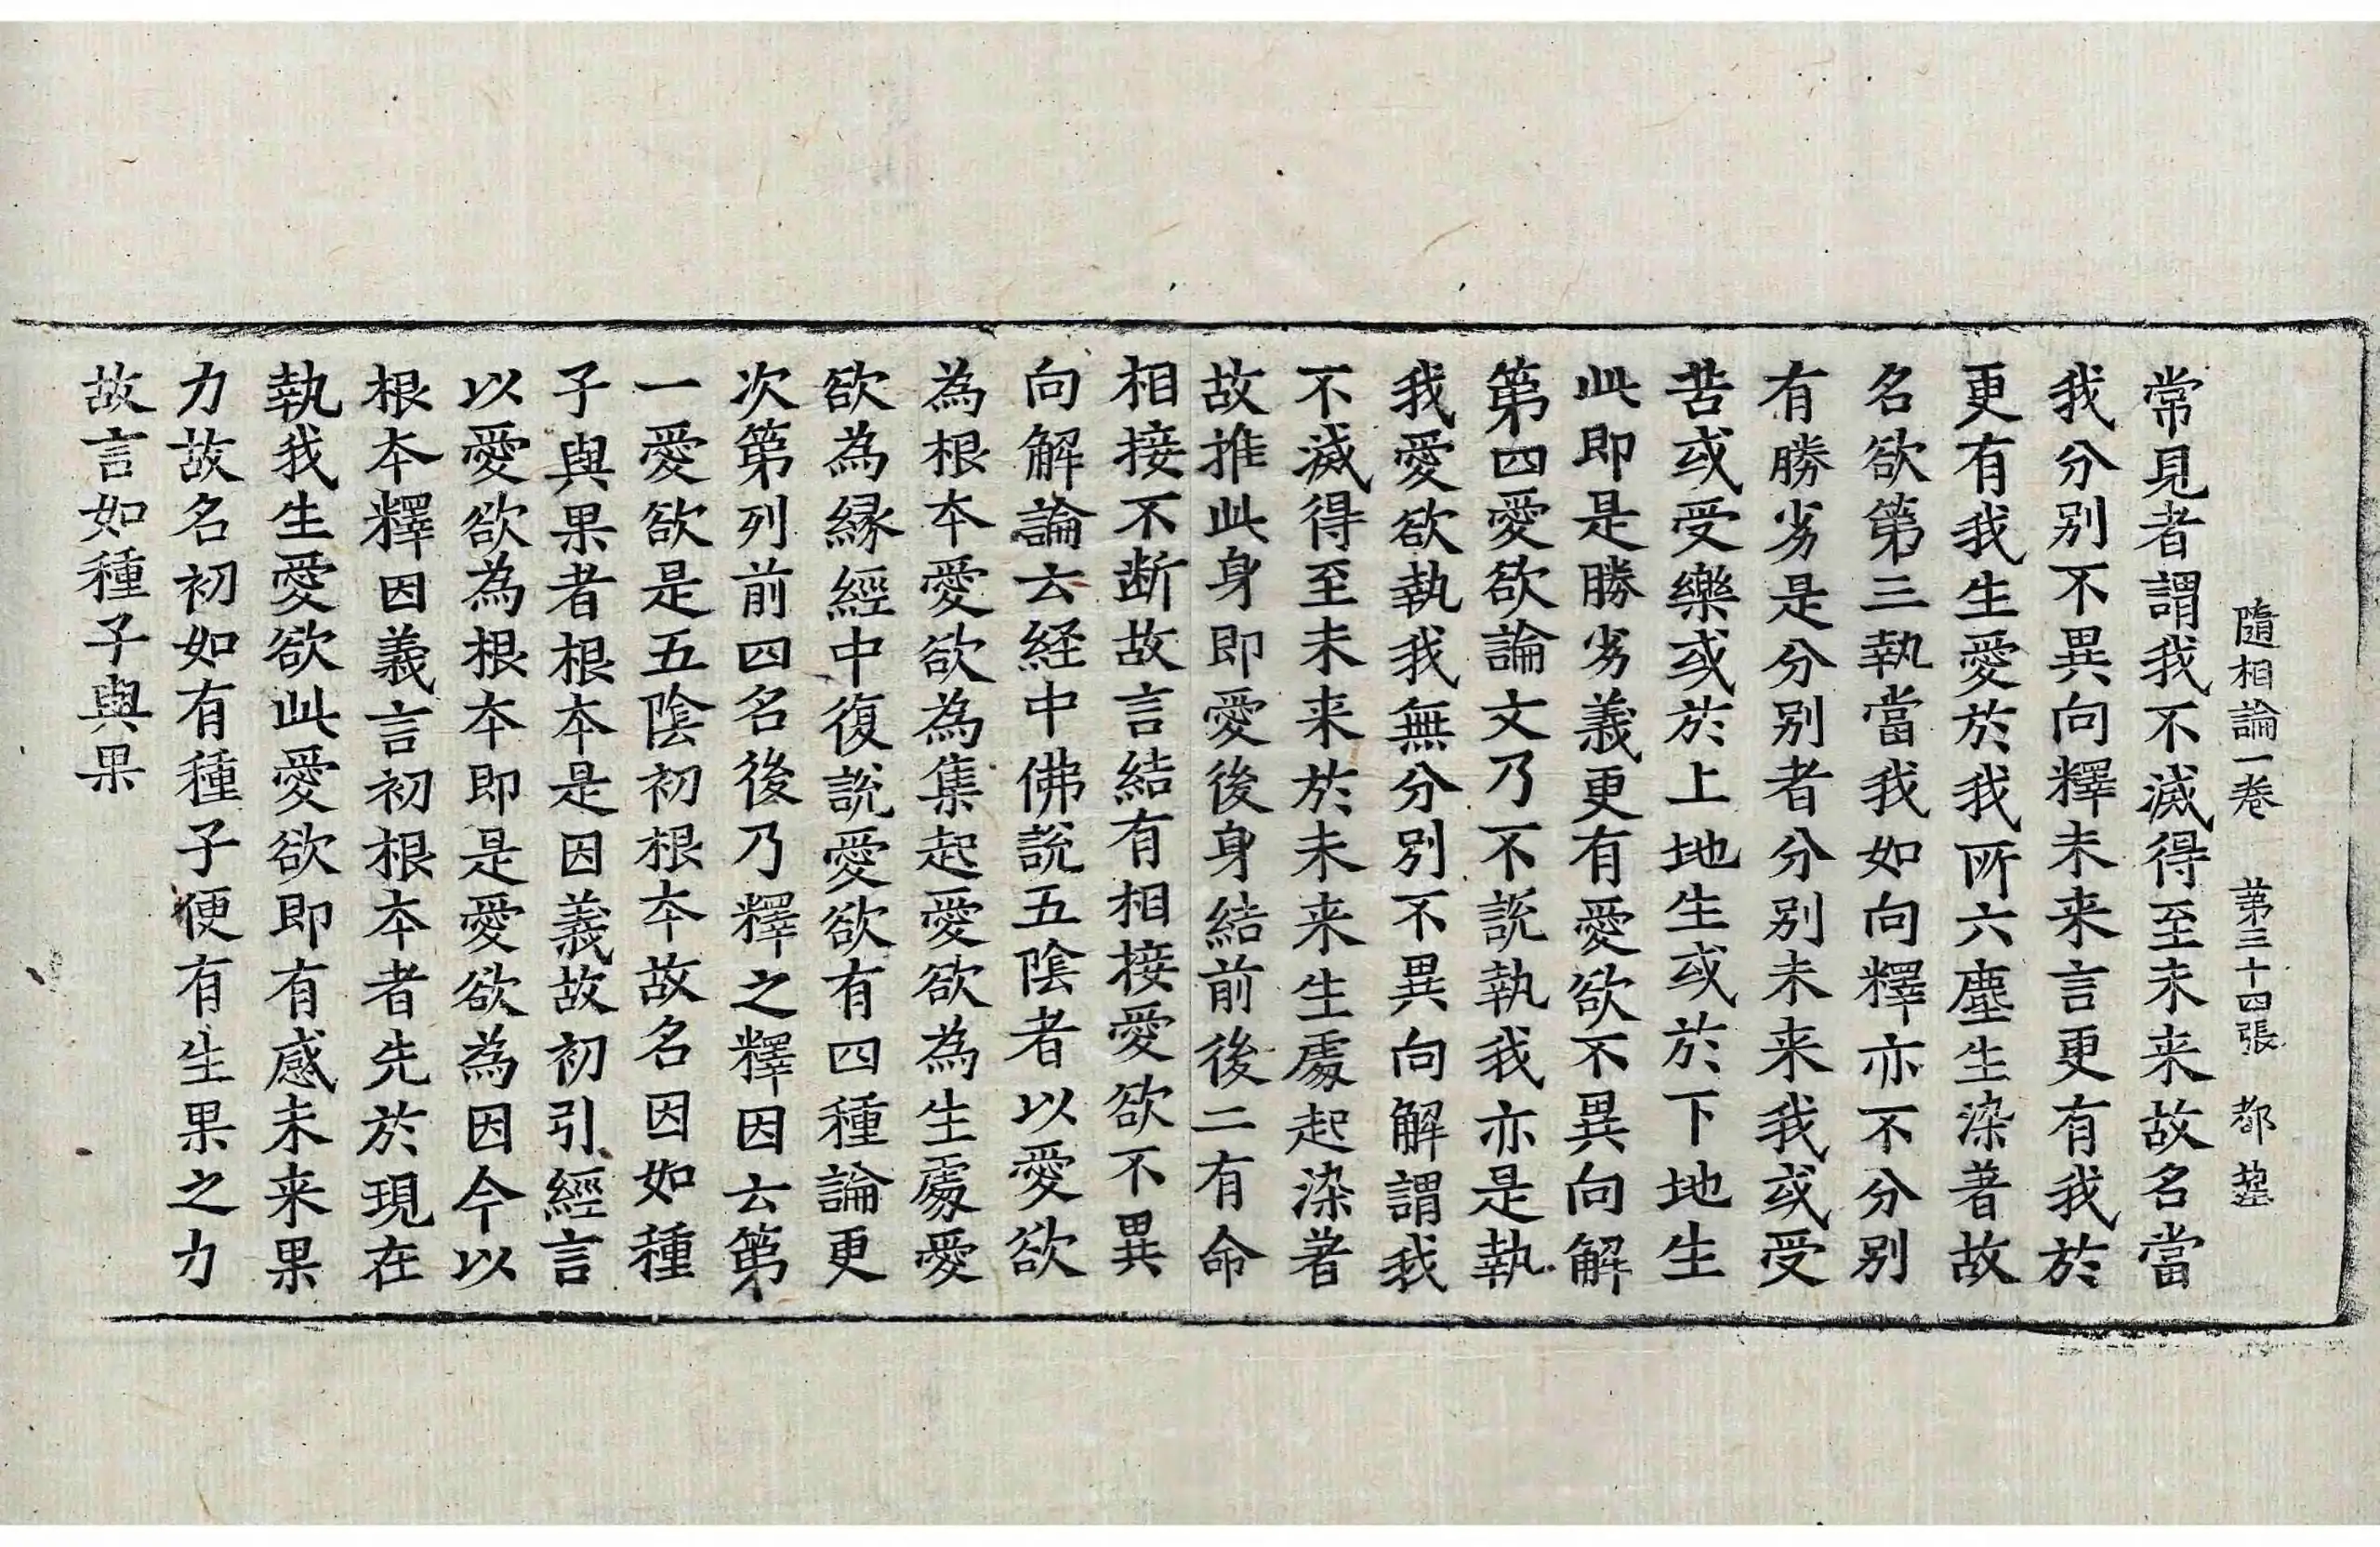 隨相論一卷　第三十四張　都
常見者謂我不滅得至未来故名當
我分別不異向釋未来言更有我於
更有我生愛於我所六塵生染著故
名欲第三執當我如向釋亦不分別
有勝劣是分別者分別未来我或受
苦或受樂或於上地生或於下地生
此即是勝劣義更有愛欲不異向解
第四愛欲論文乃不說執我亦是執
我愛欲執我無分別不異向解謂我
不滅得至未来於未来生處起染著
故推此身即愛後身結前後二有命
相接不断故言結有相接愛欲不異
向解論云経中佛說五陰者以愛欲
為根本愛欲為集起愛欲為生處愛
欲為縁經中復說愛欲有四種論更
次第列前四名後乃釋之釋因云第
一愛欲是五陰初根本故名因如種
子與果者根本是因義故初引經言
以愛欲為根本即是愛欲為因今以
根本釋因義言初根本者先於現在
執我生愛欲此愛欲即有感未来果
力故名初如有種子便有生果之力
故言如種子與果